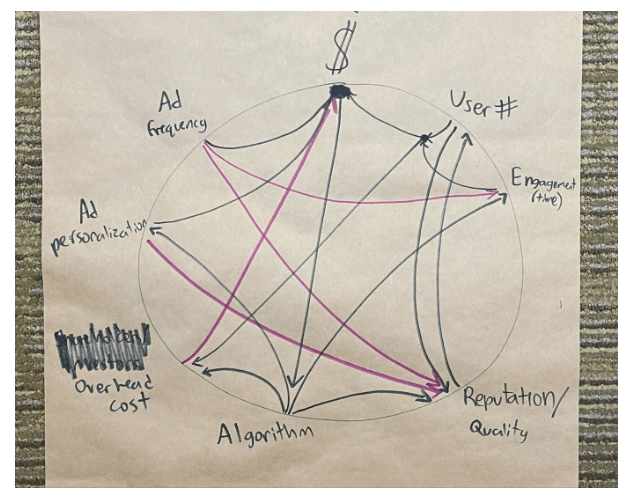 $
Ad
frequency
User #
Engagement
(time)
Ad
personalization
Overhead
cost
Algorithm
Reputation/
Quality